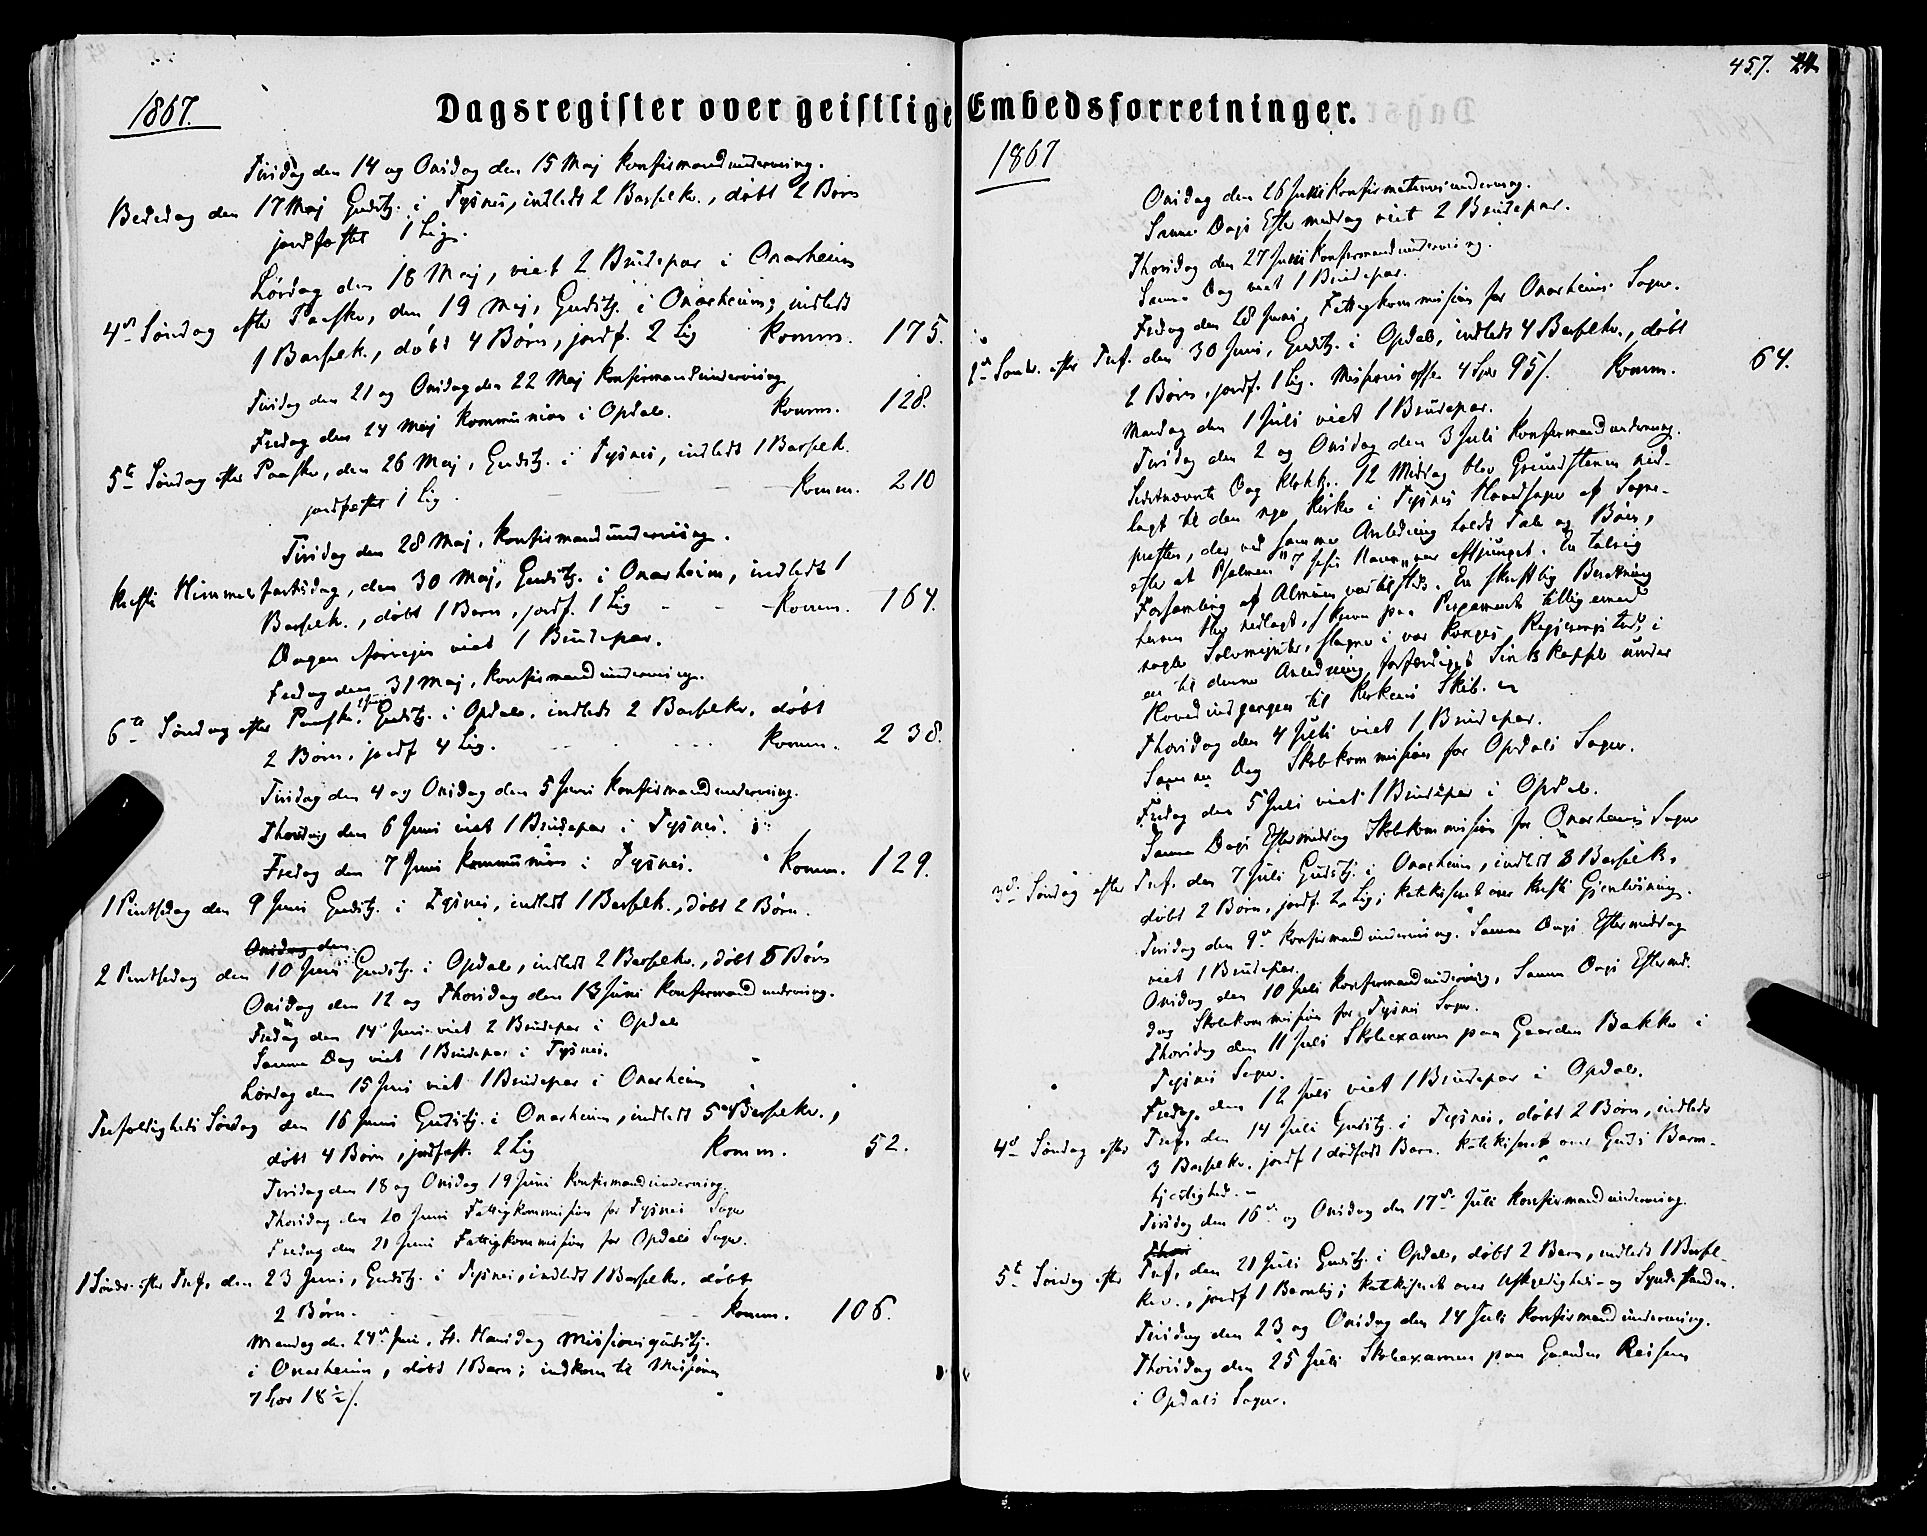 457.
Dagsregister over geistlige Embedsforretninger.
1867.
Tirsdag den 14 og Onsdag den 15 Maj Konfirmandundervisning.
Bededag den 17 Maj Gudstj. i Tysnes, indledt 2 Barselk., døbt 2 Børn
jordfæstet 1 Lig.
Lørdag den 18 Maj, viet 2 Brudepar i Onarheim
4de Søndag efter Paaske, den 19 Maj, Gudstj. i Onarheim, indledt
1 Barselk., døbt 4 Børn, jordf. 2 Lig Komm. 175.
Tirsdag den 21 og Onsdag den 22 Maj Konfirmandundervisning
Fredag den 24 Maj Kommunion i Opdal. Komm. 128.
5te Søndag efter Paaske, den 26 Maj, Gudstj. i Tysnes, indledt 1 Barselk.
jordfæstet 1 Lig. Komm. 210
Tirsdag den 28 Maj, Konfirmandundervisning.
Kristi Himmelfartsdag, den 30 Maj, Gudstj. i Onarheim, indledt 1
Barselk., døbt 1 Barn, jordf. 1 Lig - - Komm. 164.
Dagen forvejen viet 1 Brudepar.
Fredag den 31 Maj, Konfirmandundervisning.
6te Søndag efter Paaske, Gudstj. i Opdal, indledt 2 Barselkv. døbt
2 Børn, jordf 4 Lig. Komm. 238.
Tirsdag den 4 og Onsdag den 5 Juni Konfirmandundervisning.
Thorsdag den 6 Juni viet 1 Brudepar i Tysnes.
Fredag den 7 Juni Kommunion i Tysnes. Komm. 129.
1 Pintsedag den 9 Juni Gudstj. i Tysnes, indledt 1 Barselk., døbt 2 Børn.
Onsdag den
2 Pintsedag den 10 Juni Gudstj. i Opdal, indledt 2 Barselkv., døbt 5 Børn
Onsdag den 12 og Thorsdag den 13 Juni Konfirmandundervisning.
Fredag den 14 Juni viet 2 Brudepar i Opdal
Samme Dag viet 1 Brudepar i Tysnes.
Lørdag den 15 Juni viet 1 Brudepar i Onarheim
Trefoldigheds Søndag den 16 Juni Gudstj. i Onarheim, indledt 5 Barselkv.,
døbt 4 Børn, jordfæst. 2 Lig Komm. 52.
Tirsdag den 18 og Onsdag 19 Juni Konfirmandundervisning.
Thorsdag den 20 Juni Fattigkommission for Tysnes Sogn
Fredag den 21 Juni Fattigkommission for Opdals Sogn.
1 Sønd. efter Tref. den 23 Juni, Gudstj. i Tysnes, indledt 1 Barselkv. døbt
2 Børn. Komm. 106.
Mandag den 24de Juni, St. Hansdag Missionsgudstj.
i Onarheim, døbt 1 Barn; indkom til Missionen
7 Spd 18½ /.
1867
Onsdag den 26 Juni Konfirmationsundervisning.
Samme Dags Eftermiddag viet 2 Brudepar.
Thorsdag den 27 Juni Konfirmandundervisning.
Samme Dag viet 1 Brudepar.
Fredag den 28 Juni, Fattigkommission for Onarheims Sogn.
2den Sønd. efter Tref. den 30 Juni, Gudstj. i Opdal, indledt 4 Barselkv., døbt
2 Børn, jordf. 1 Lig. Missions offer 4 Spd 95 /. Komm. 64.
Mandag den 1 Juli viet 1 Brudepar.
Tirsdag den 2 og Onsdag den 3 Juli Konfirmandundervisning.
Sidstnævnte Dag Klokk. 12 Middag blev Grundstenen ned-
lagt til den nye Kirke i Tysnes Hovedsogn af Sogne-
præsten, der ved samme Anledning holdt Tale og Bøn,
efter at Psalmen "I Jesu Navn" var afsjunget. En talrig
Forsamling af Almuen var tilstede. En skriftlig Beretning
herom blev nedlagt, skreven paa Pergament tilligemed
nogle Sølvmynter, slagne i vor Konges Regjeringstid, i
en til denne Anledning forfærdiget Sinkskapsel under
Hovedindgangen til Kirkens Skib.
Thorsdag den 4 Juli viet 1 Brudepar.
Samme Dag Skolekommission for Opdals Sogn.
Fredag den 5 Juli viet 1 Brudepar i Opdal.
Samme Dags Eftermiddag Skolekommission for Onarheims Sogn
3die Søndag efter Tref. den 7 Juli Gudstj. i Onarheim, indledt 3 Barselk.
døbt 2 Børn, jordf. 2 Lig; katekiseret over Kristi Gjenløsning.
Tirsdag den 9de Konfirmandundervisning. Samme Dags Eftermiddag
viet 1 Brudepar.
Onsdag den 10 Juli Konfirmandundervisning, Samme Dags Eftermid-
dag Skolekommission for Tysnes Sogn.
Thorsdag den 11 Juli Skoleexamen paa Gaarden Bakke i
Tysnes Sogn.
Fredag den 12 Juli viet 1 Brudepar i Opdal.
4de Søndag efter Tref. den 14 Juli Gudstj. i Tysnes, døbt 2 Børn, indledt
3 Barselkv. jordf 1 dødfødt Barn. Katekiseret over Guds Barm-
hjertighed.
Tirsdag den 16de og Onsdag den 17de Juli Konfirmandundervisning.
Thors
5te Søndag efter Tref. den 21 Juli Gudstj. i Opdal, døbt 2 Børn, indledt 1 Barsel-
kv., jordf 1 Barnlig; katekiseret over Uskyldigheds- og Syndestanden.
Tirsdag den 23 og Onsdag den 24 Juli Konfirmandundervisning.
Thorsdag den 25 Juli Skoleexamen paa Gaarden Reisem
i Opdals Sogn.